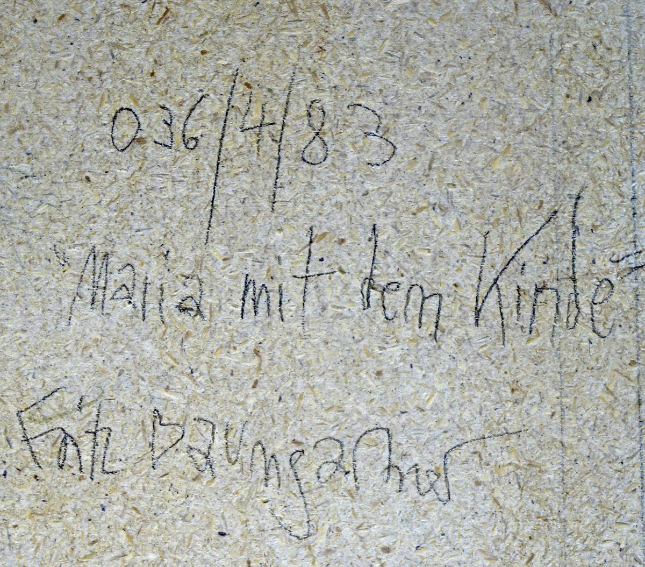 036/4/83
"Maria mit dem Kinde"
Fritz Baumgartner